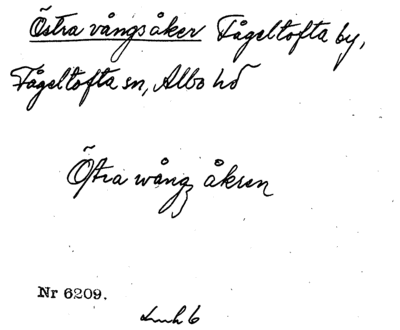 Östra vångsåker Fågeltofta by,
Fågeltofta sn, Albo hd
Östra wångz åkren
Nr 6209.
Lmh 6